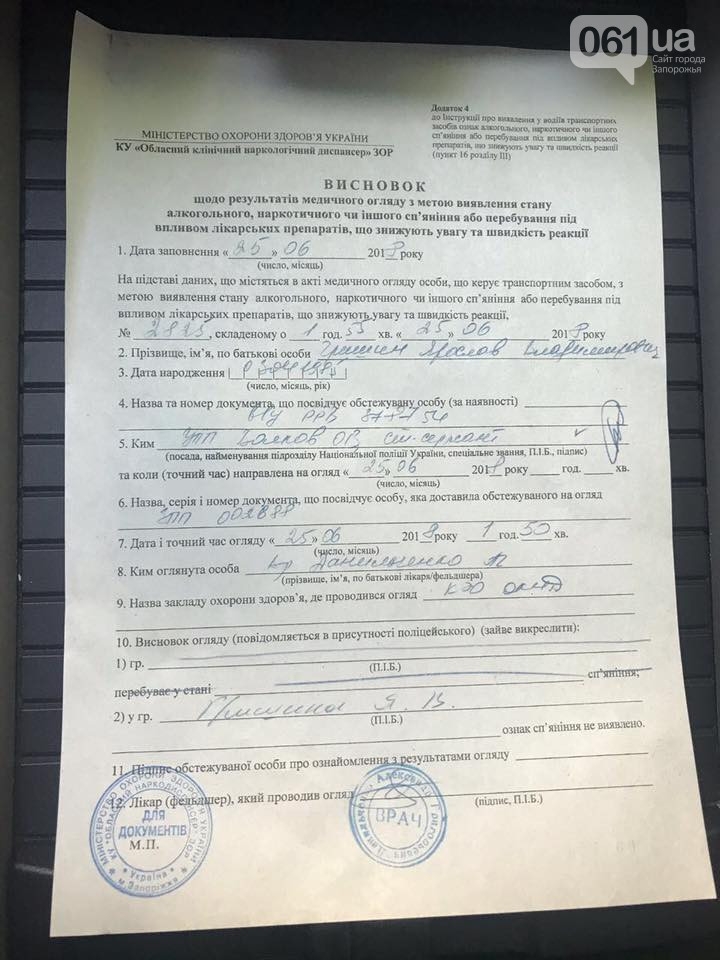 061 ua
Сайт города
Запорожья
Додаток 4
до Інструкції про виявлення у водіїв транспортних
засобів ознак алкогольного, наркотичного чи іншого
сп'яніння або перебування під впливом лікарських
препаратів, що знижують увагу та швидкість реакції
(пункт 16 розділу III)
МІНІСТЕРСТВО ОХОРОНИ ЗДОРОВ'Я УКРАЇНИ
КУ «Обласний клінічний наркологічний диспансер» ЗОР
ВИСНОВОК
щодо результатів медичного огляду з метою виявлення стану
алкогольного, наркотичного чи іншого сп'яніння або перебування під
впливом лікарських препаратів, що знижують увагу та швидкість реакції
1. Дата заповнення «25» 06 2018 року
(число, місяць)
На підставі даних, що містяться в акті медичного огляду особи, що керує транспортним засобом, з
метою виявлення стану алкогольного, наркотичного чи іншого сп'яніння або перебування під
впливом лікарських препаратів, що знижують увагу та швидкість реакції,
№ 2825, складеному о 1 год. 55 хв. «25» 06 2018 року
2. Прізвище, ім'я, по батькові особи Ярослав Владимирович
3. Дата народження
(число, місяць, рік)
4. Назва та номер документа, що посвідчує обстежувану особу (за наявності)
5. Ким УПП ОВ ст. сержант
(посада, найменування підрозділу Національної поліції України, спеціальне звання, П.І.Б., підпис)
та коли (точний час) направлена на огляд «25» 06 2018 року год. хв.
(число, місяць)
6. Назва, серія і номер документа, що посвідчує особу, яка доставила обстежуваного на огляд
УПП
7. Дата і точний час огляду «25» 06 2018 року 1 год. 50 хв.
(число, місяць)
8. Ким оглянута особа Данильченко
(прізвище, ім'я, по батькові лікаря/фельдшера)
9. Назва закладу охорони здоров'я, де проводився огляд
10. Висновок огляду (повідомляється в присутності поліцейського) (зайве викреслити):
1) гр.
(П.І.Б.)
сп'яніння;
перебуває у стані
2) у гр. Я. В.
(П.І.Б.)
ознак сп'яніння не виявлено.
11. Підпис обстежуваної особи про ознайомлення з результатами огляду
12. Лікар (фельдшер), який проводив огляд
(підпис, П.І.Б.)
МІНІСТЕРСТВО ОХОРОНИ ЗДОРОВ'Я УКРАЇНИ
КУ "ОБЛАСНИЙ НАРКОДИСПАНСЕР" ЗОР
ДЛЯ
ДОКУМЕНТІВ
М.П.
Україна
м. Запоріжжя
Александр Григорьевич
ВРАЧ